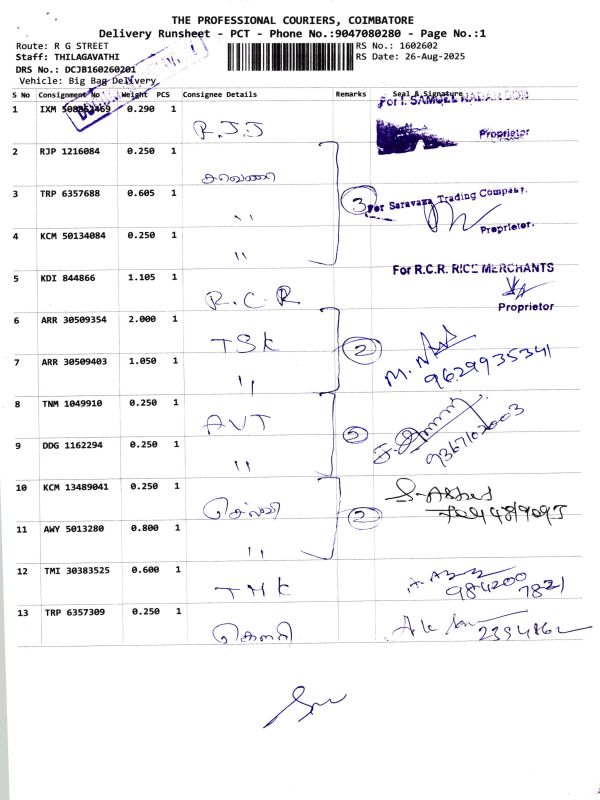 THE PROFESSIONAL COURIERS, COIMBATORE
Delivery Runsheet - PCT - Phone No.:9047080280 - Page No.:1
Route: R G STREET
RS No.: 1602602
Staff: THILAGAVATHI
RS Date: 26-Aug-2025
DRS No.: DCJB160260201
Vehicle: Big Bag Delivery
S No Consignment No Weight PCS Consignee Details Remarks Seal & Signature
1 IXM 0.290 1 R.J.J
For I. SAMUEL
Proprietor
2 RJP 1216084 0.250 1
3 TRP 6357688 0.605 1 " 3
For Saravana Trading Company.
Proprietor.
4 KCM 50134084 0.250 1 "
5 KDI 844866 1.105 1 R.C.R
For R.C.R. RICE MERCHANTS
Proprietor
6 ARR 30509354 2.000 1 TSK 2
M.
9629935341
7 ARR 30509403 1.050 1 "
8 TNM 1049910 0.250 1 AVT
9367102003
9 DDG 1162294 0.250 1 "
10 KCM 13489041 0.250 1 செல்வி 2
11 AWY 5013280 0.800 1 "
12 TMI 30383525 0.600 1 TMK
984200
7821
13 TRP 6357309 0.250 1 கௌரி